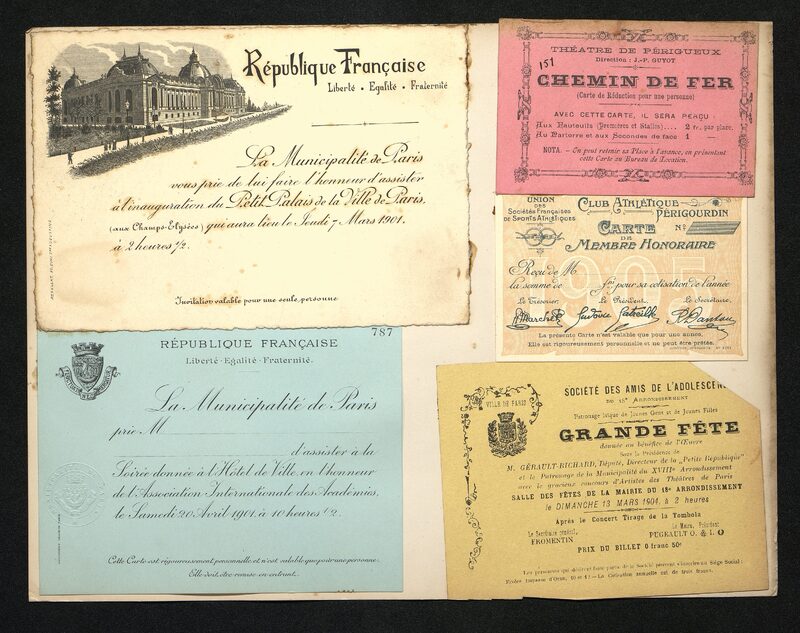 République Française
Liberté • Egalité • Fraternité
La Municipalité de Paris
vous prie de lui faire l'honneur d'assister
à l'inauguration du Petit Palais de la Ville de Paris.
(aux Champs-Elysées) qui aura lieu le Jeudi 7 Mars 1901.
à 2 heures ½.
Invitation valable pour une seule personne
THÉATRE DE PÉRIGUEUX
Direction : J.-P. GUYOT
151
CHEMIN DE FER
(Carte de Réduction pour une personne)
AVEC CETTE CARTE, IL SERA PERÇU :
Aux Fauteuils (Premières et Stalles).... 2 fr. par place.
Au Parterre et aux Secondes de face 1 —
NOTA. — On peut retenir sa Place à l'avance, en présentant
cette Carte au Bureau de Location.
UNION
DES
Sociétés Françaises
DE SPORTS ATHLÉTIQUES
CLUB ATHLÉTIQUE
PÉRIGOURDIN
CARTE
DE
MEMBRE HONORAIRE
No
1905
Reçu de M
la somme de frs pour sa cotisation de l'année
Le Trésorier, Le Président, Le Secrétaire,
La présente Carte n'est valable que pour une année.
Elle est rigoureusement personnelle et ne peut être prêtée.
787
RÉPUBLIQUE FRANÇAISE
Liberté · Egalité · Fraternité.
La Municipalité de Paris
prie M
d'assister à la
Soirée donnée à l'Hôtel de Ville, en l'honneur
de l'Association Internationale des Académies,
le Samedi 20 Avril 1901 à 10 heures ½.
Cette Carte est rigoureusement personnelle et n'est valable que pour une personne.
Elle doit être remise en entrant.
VILLE DE PARIS
SOCIÉTÉ DES AMIS DE L'ADOLESCEN
Patronage laïque de Jeunes Gens et de Jeunes Filles
GRANDE FÊTE
donnée au bénéfice de l'Œuvre
Sous la Présidence de
M. GÉRAULT-RICHARD, Député, Directeur de la "Petite République"
et le Patronage de la Municipalité du XVIIIe Arrondissement
avec le gracieux concours d'Artistes des Théâtres de Paris
SALLE DES FÊTES DE LA MAIRIE DU 18e ARRONDISSEMENT
le DIMANCHE 13 MARS 1904, à 2 heures
Après le Concert Tirage de la Tombola
Le Secrétaire général, Le Maire, Président
FROMENTIN PUGEAULT O. & I. O
PRIX DU BILLET 0 franc 50c